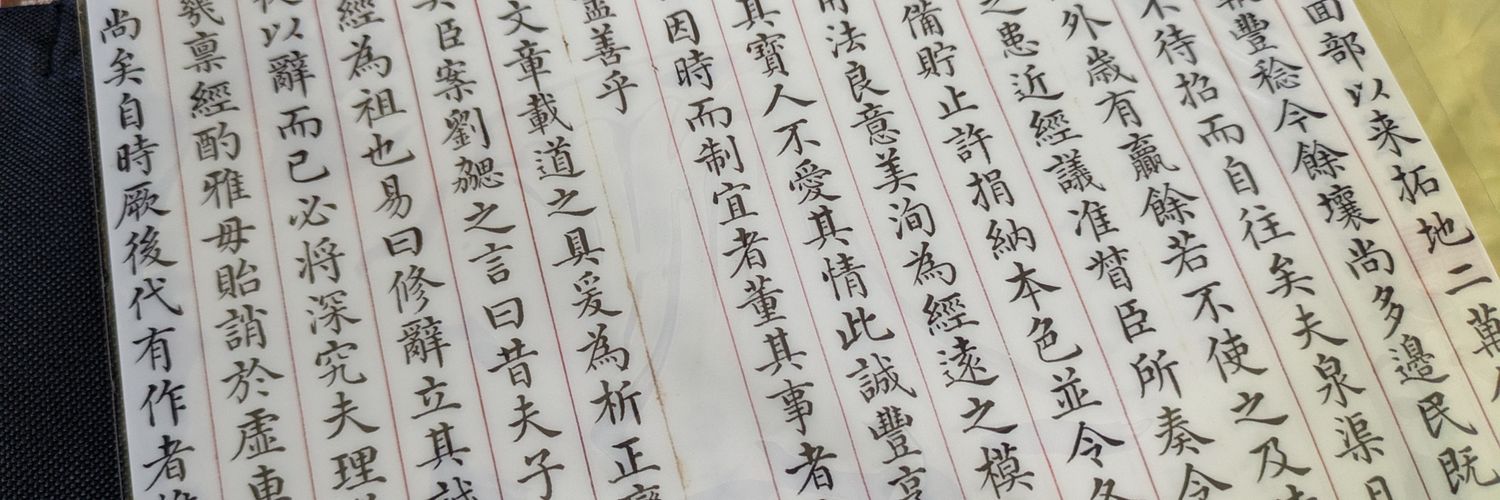 萬
面部以来拓地二
豐稔今餘壤尚多邊民既
不待招而自往矣夫泉渠
外歲有贏餘若不使之及
之患近經議准督臣所奏令
備貯止許捐納本色並令各
用法良意美洵為經遠之模
其寶人不愛其情此誠豐亨
因時而制宜者董其事者
善乎
文章載道之具爰為析正
臣案劉勰之言曰昔夫子
經為祖也易曰修辭立其誠
以辭而已必將深究夫理
稟經酌雅毋貽誚於虛車
尚矣自時厥後代有作者